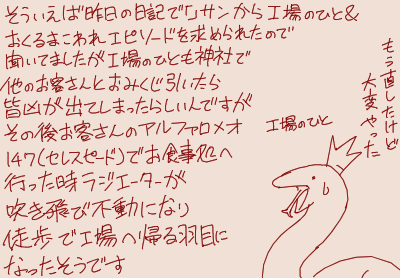 そういえば昨日の日記でリサンから工場のひと&
おくるまこわれエピソードを求められたので
聞いてましたが工場のひとも神社で
他のお客さんとおみくじ引いたら
皆凶が出てしまったらしいんですが
その後お客さんのアルファロメオ
147(セレスピード)でお食事処へ
行った時ラジエーターが
吹き飛び不動になり
徒歩で工場へ帰る羽目に
なったそうです
もう直したけど
大変やった
工場のひと